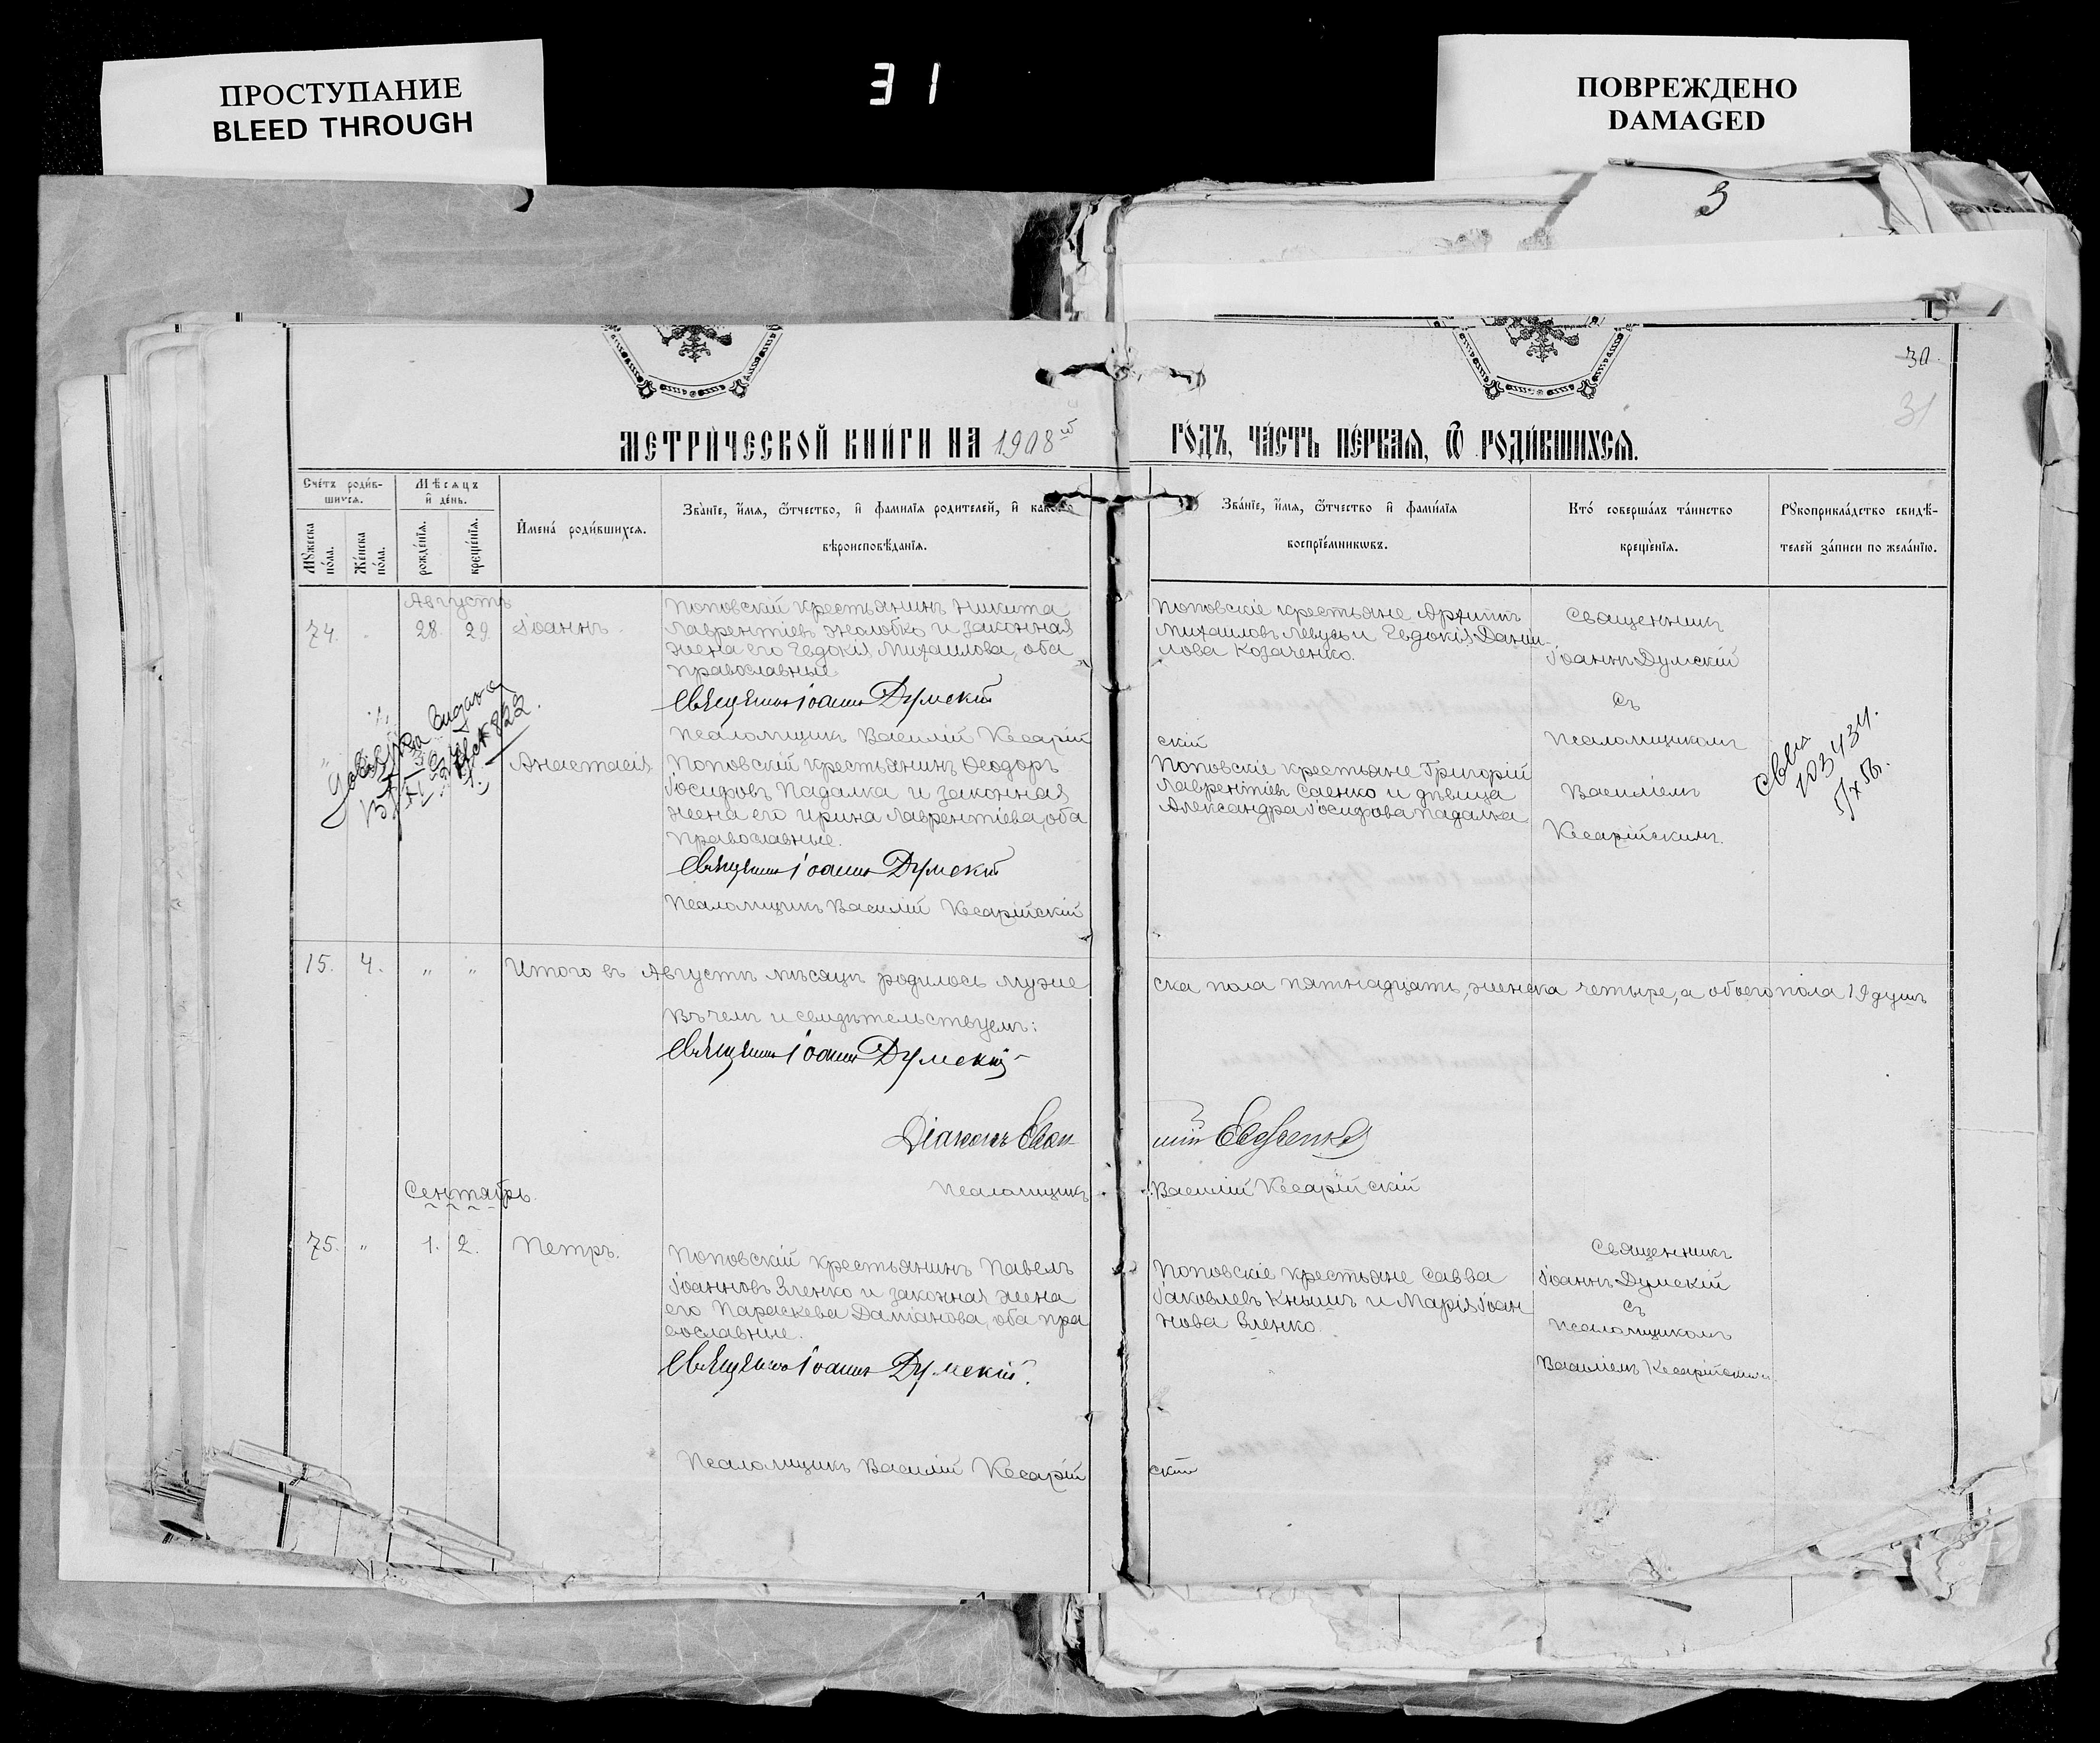 ПРОСТУПАНИЕ
BLEED THROUGH
31
ПОВРЕЖДЕНО
DAMAGED
3
30
31
МЕТРИ́ЧЕСКОЙ КНИ́ГИ НА 1908 й
ГО́ДЪ, ЧА́СТЬ ПЕ́РВАЯ, Ѿ РОДИ́ВШИХСЯ.
Сче́тъ роди́в-
шихся.
Му́жеска по́ла.
Же́нска по́ла.
Мѣ́сяцъ
и҆ де́нь.
рожде́нїя.
креще́нїя.
И҆мена̀ роди́вшихся.
Зва́нїе, и҆́мя, ѻ҆́тчество, и҆ фами́лїя роди́телей, и҆ како́гѡ
вѣроисповѣ́данїя.
Зва́нїе, и҆́мя, ѻ҆́тчество и҆ фами́лїя
воспрїе́мниковъ.
Кто̀ соверша́лъ та́инство
креще́нїя.
Рꙋкоприкла́дство свидѣ́-
телей за́писи по жела́нїю.
Августъ
74. 28. 29. Іоаннъ.
Поповскій крестьянинъ Никита
Лаврентіевъ Жолобко и законная
жена его Евдокія Михаилова, оба
православные.
Священникъ Іоаннъ Думскій
Псаломщикъ Василій Кесарій
скій
Поповскіе крестьяне Архипъ
Михаиловъ Левусь и Евдокія Даніи-
лова Козаченко.
Священникъ
Іоаннъ Думскій
съ
Псаломщикомъ
Василіемъ
Кесарійскимъ.
выдана
822.
Анастасія
Поповскій крестьянинъ Ѳеодоръ
Іосифовъ Падалка и законная
жена его Ирина Лаврентіева, оба
православные.
Священникъ Іоаннъ Думскій
Псаломщикъ Василій Кесарійскій
Поповскіе крестьяне Григорій
Лаврентіевъ Саенко и дѣвица
Александра Іосифова Падалка
15. 4. " " Итого въ Августѣ мѣсяцѣ родилось муже
ска пола пятнадцать, женска четыре, а обоего пола 19 душъ
Въ чемъ и свидѣтельствуемъ:
Священникъ Іоаннъ Думскій
Діаконъ
Псаломщикъ Василій Кесарійскій
Сентябрь.
75. " 1. 2. Петръ.
Поповскій крестьянинъ Павелъ
Іоанновъ Зленко и законная жена
его Параскева Даміанова, оба пра
вославные.
Священникъ Іоаннъ Думскій.
Псаломщикъ Василій Кесарій
скій
Поповскіе крестьяне Савва
Іаковлевъ Кнышъ и Марія Іоан
нова Зленко.
Священникъ
Іоаннъ Думскій
съ
Псаломщикомъ
Василіемъ Кесарійскимъ